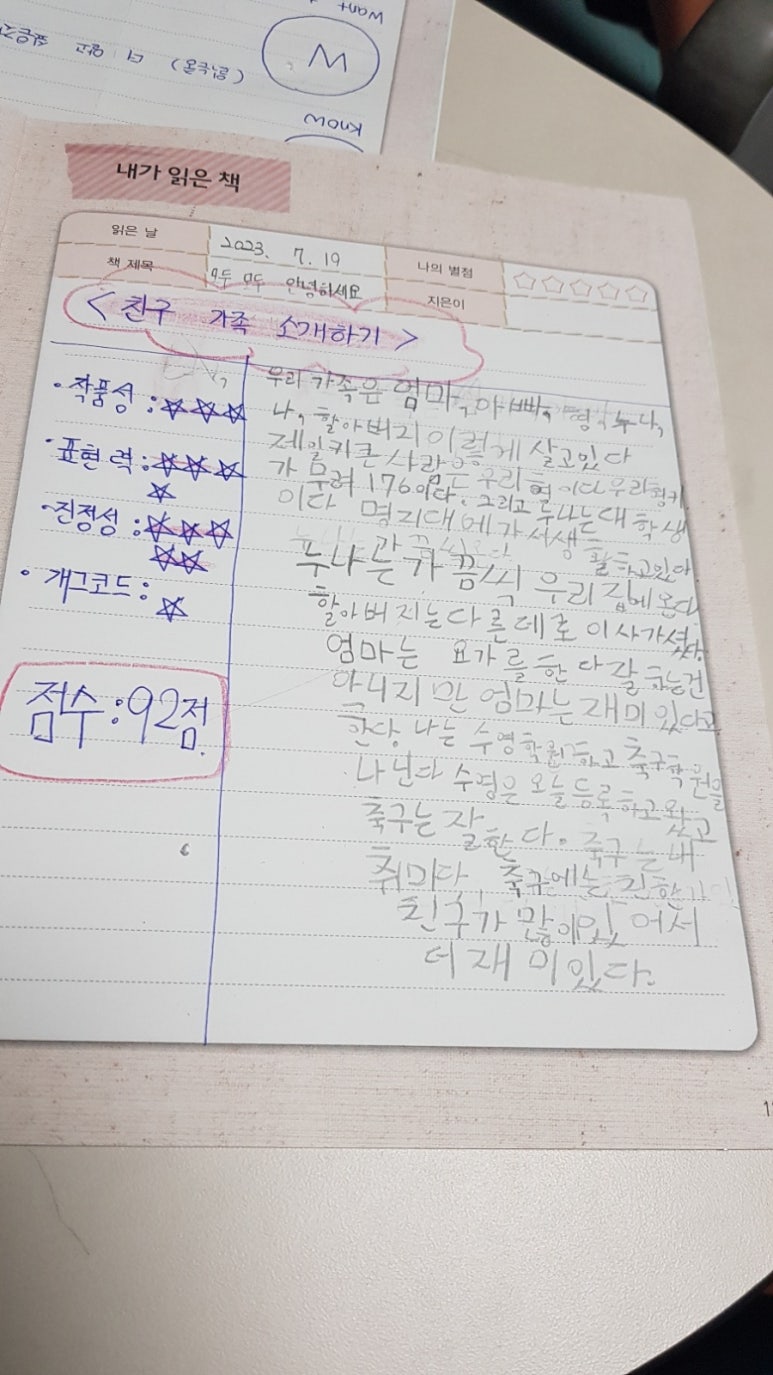 Want
W
(뒷글) 더 알고 싶은
Know
내가 읽은 책
읽은 날 2023. 7. 19 나의 별점
책 제목 모두 모두 안녕하세요 지은이
<친구 가족 소개하기>
• 작품성 :
• 표현력 :
• 진정성 :
• 개그코드 :
점수 : 92점.
우리 가족은 엄마, 아빠, 형, 누나,
나, 할아버지 이렇게 살고있다
제일 키큰 사람은 우리 형이다 우리형키
가 무려 176이다. 그리고 누나는 대학생
이다 명지대에 가서 생활하고있다.
누나는 가끔식 우리 집에 온다
할아버지는 다른데로 이사가셨다.
엄마는 요가를 한다 잘하는건
아니지만 엄마는 재미있다고
한다. 나는 수영학원하고 축구학원을
다닌다 수영은 오늘 등록하고 왔고
축구는 잘한다. 축구는 내
취미다, 축구에는 친한
친구가 많이 있어서
더 재미있다.